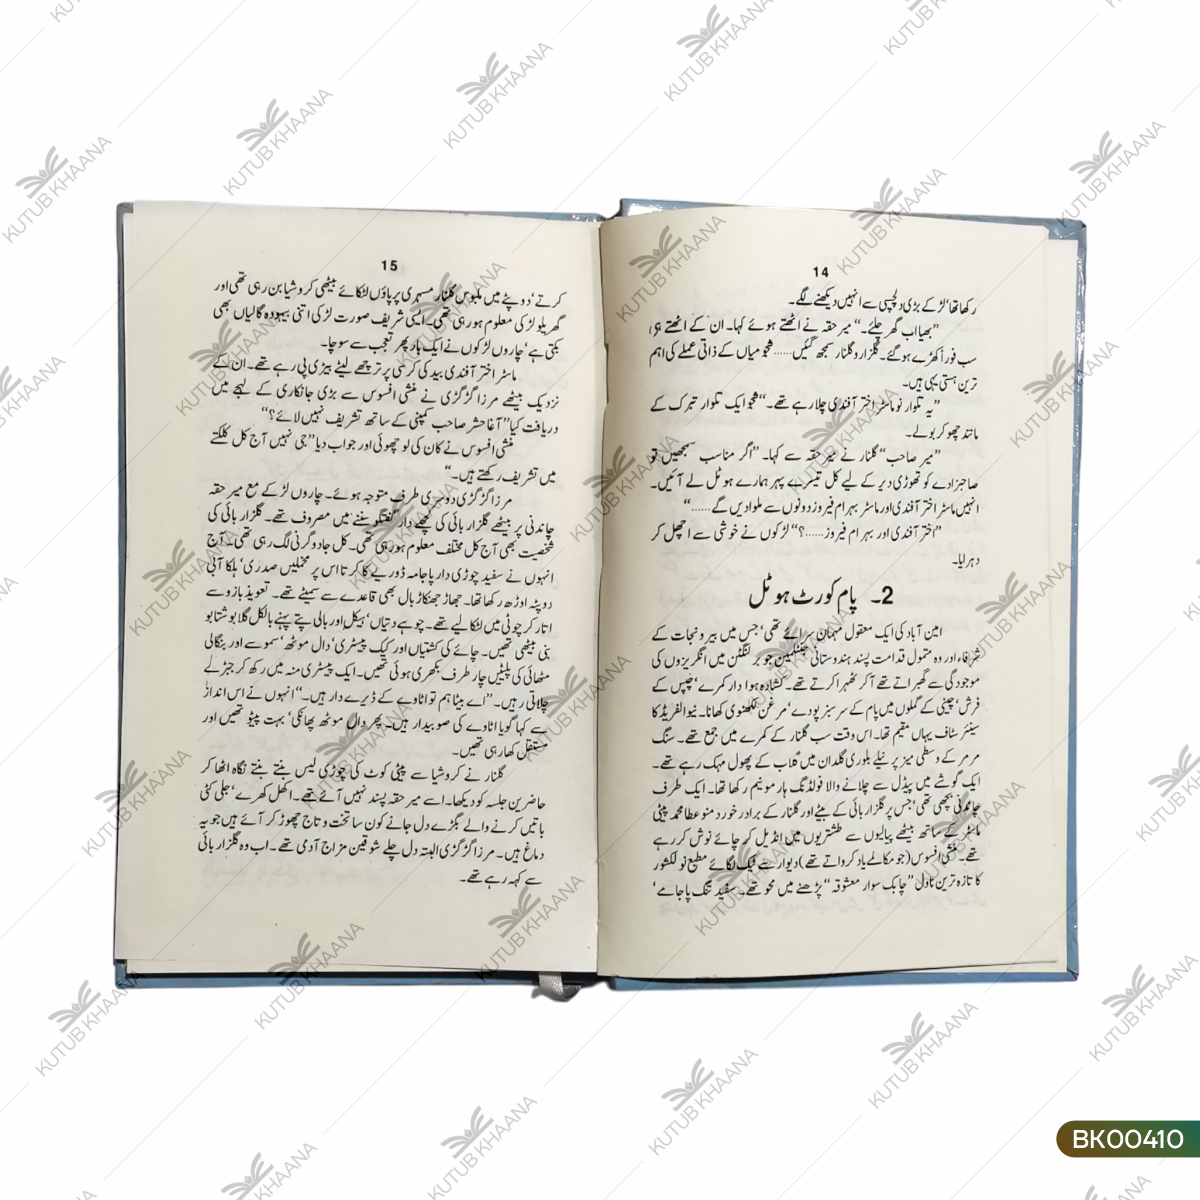 14
رکھا تھا‘ لڑکے بڑی دلچسپی سے انہیں دیکھنے لگے۔
”بھیا اب گھر چلئے۔“ میر حقہ نے اٹھتے ہوئے کہا۔ ان کے اٹھتے ہی
سب فوراً کھڑے ہو گئے۔ گلزار و گلنار سمجھ گئیں...... شجو میاں کے ذاتی عملے کی اہم
ترین ہستی یہی ہیں۔
”یہ تلوار تو ماسٹر اختر آفندی چلا رہے تھے۔“ شجو ایک تلوار تبرک کے
مانند چھو کر بولے۔
”میر صاحب“ گلنار نے میر حقہ سے کہا۔ ”اگر مناسب سمجھیں تو
صاحبزادے کو تھوڑی دیر کے لیے کل تیسرے پہر ہمارے ہوٹل لے آئیں۔
انہیں ماسٹر اختر آفندی اور ماسٹر بہرام فیروز دونوں سے ملوادیں گے......“
”اختر آفندی اور بہرام فیروز......؟“ لڑکوں نے خوشی سے اچھل کر
دہرایا۔
2۔ پام کورٹ ہوٹل
امین آباد کی ایک معقول مہمان سرائے تھی‘ جس میں بیرونجات کے
شرفاء اور وہ متمول قدامت پسند ہندوستانی جنٹلمین جو برلنگٹن میں انگریزوں کی
موجودگی سے گھبراتے تھے آکر ٹھہرا کرتے تھے۔ کشادہ ہوا دار کمرے‘ چپس کے
فرش‘ چینی کے گملوں میں پام کے سرسبز پودے‘ مرغن لکھنوی کھانا۔ نیو الفریڈ کا
سینئر سٹاف یہاں مقیم تھا۔ اس وقت سب گلنار کے کمرے میں جمع تھے۔ سنگ
مرمر کے وسطی میز پر نیلے بلوری گلدان میں گلاب کے پھول مہک رہے تھے۔
ایک گوشے میں پیڈل سے چلانے والا فولڈنگ ہارمونیم رکھا تھا۔ ایک طرف
چاندنی بچھی تھی‘ جس پر گلزار بائی کے بیٹے اور گلنار کے برادر خورد منو عطا محمد پیٹی
ماسٹر کے ساتھ بیٹھے پیالیوں سے طشتریوں میں انڈیل کر چائے نوش کر رہے
تھے۔ منشی افسوس (جو مکالمے یاد کرواتے تھے) دیوار سے ٹیک لگائے مطبع نولکشور
کا تازہ ترین ناول ”چابک سوار معشوقہ“ پڑھنے میں محو تھے۔ سفید تنگ پاجامے‘
15
کرتے‘ دوپٹے میں ملبوس گلنار مسہری پر پاؤں لٹکائے بیٹھی کروشیا بن رہی تھی اور
گھریلو لڑکی معلوم ہو رہی تھی۔ ایسی شریف صورت لڑکی اتنی بیہودہ گالیاں بھی
بکتی ہے‘ چاروں لڑکوں نے ایک بار پھر تعجب سے سوچا۔
ماسٹر اختر آفندی بید کی کرسی پر ترچھے لیٹے بیڑی پی رہے تھے۔ ان کے
نزدیک بیٹھے مرزا گڑگڑی نے منشی افسوس سے بڑی جانکاری کے لہجے میں
دریافت کیا ”آغا حشر صاحب کمپنی کے ساتھ تشریف نہیں لائے؟“
منشی افسوس نے کان کی لو چھوئی اور جواب دیا ”جی نہیں آج کل کلکتے
میں تشریف رکھتے ہیں۔“
مرزا گڑگڑی دوسری طرف متوجہ ہوئے۔ چاروں لڑکے مع میر حقہ
چاندنی پر بیٹھے گلزار بائی کی لچھے دار گفتگو سننے میں مصروف تھے۔ گلزار بائی کی
شخصیت بھی آج کل مختلف معلوم ہو رہی تھی۔ کل جادوگرنی لگ رہی تھی۔ آج
انہوں نے سفید چوڑی دار پاجامہ ڈوریے کا کرتا اس پر مخملیں صدری‘ ہلکا آبی
دوپٹہ اوڑھ رکھا تھا۔ جھاڑ جھنکاڑ بال بھی قاعدے سے سمیٹے تھے۔ تعویذ بازو سے
اتار کر چوٹی میں لٹکا لیے تھے۔ چوہے دتیاں‘ ہیکل اور بالی پتے پہنے بالکل گلابو شتابو
بنی بیٹھی تھیں۔ چائے کی کشتیاں اور کیک پیسٹری‘ دال موٹھ‘ سموسے اور بنگالی
مٹھائی کی پلیٹیں چار طرف بکھری ہوئی تھیں۔ ایک پیسٹری منہ میں رکھ کر جبڑے
چلاتی ہیں۔ ”اے بیٹا ہم تو اٹاوے کے ڈیرے دار ہیں۔“ انہوں نے اس انداز
سے کہا گویا اٹاوے کی صوبیدار ہیں۔ پھر دال موٹھ پھانکی‘ بہت پیٹو تھیں اور
مستقل کھا رہی تھیں۔
گلنار نے کروشیا سے پیٹی کوٹ کی چوڑی لیس بنتے بنتے نگاہ اٹھا کر
حاضرین جلسہ کو دیکھا۔ اسے میر حقہ پسند نہیں آئے تھے۔ اکھل کھرے‘ جلی کٹی
باتیں کرنے والے بگڑے دل جانے کون سا تخت و تاج چھوڑ کر آئے ہیں جو یہ
دماغ ہیں۔ مرزا گڑگڑی البتہ دل چلے شوقین مزاج آدمی تھے۔ اب وہ گلزار بائی
سے کہہ رہے تھے۔
KUTUB KHAANA
BK00410